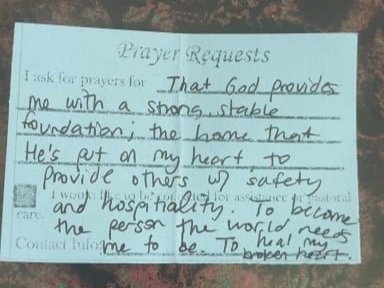 Prayer Requests
I ask for prayers for That God provides
me with a strong, stable
foundation; the home that
He's put on my heart, to
provide others w/ safety
I would like to be for assistance or pastoral
and hospitiality. To become
care.
the person the world needs
Contact Info:
me to be. To heal my
broken heart.